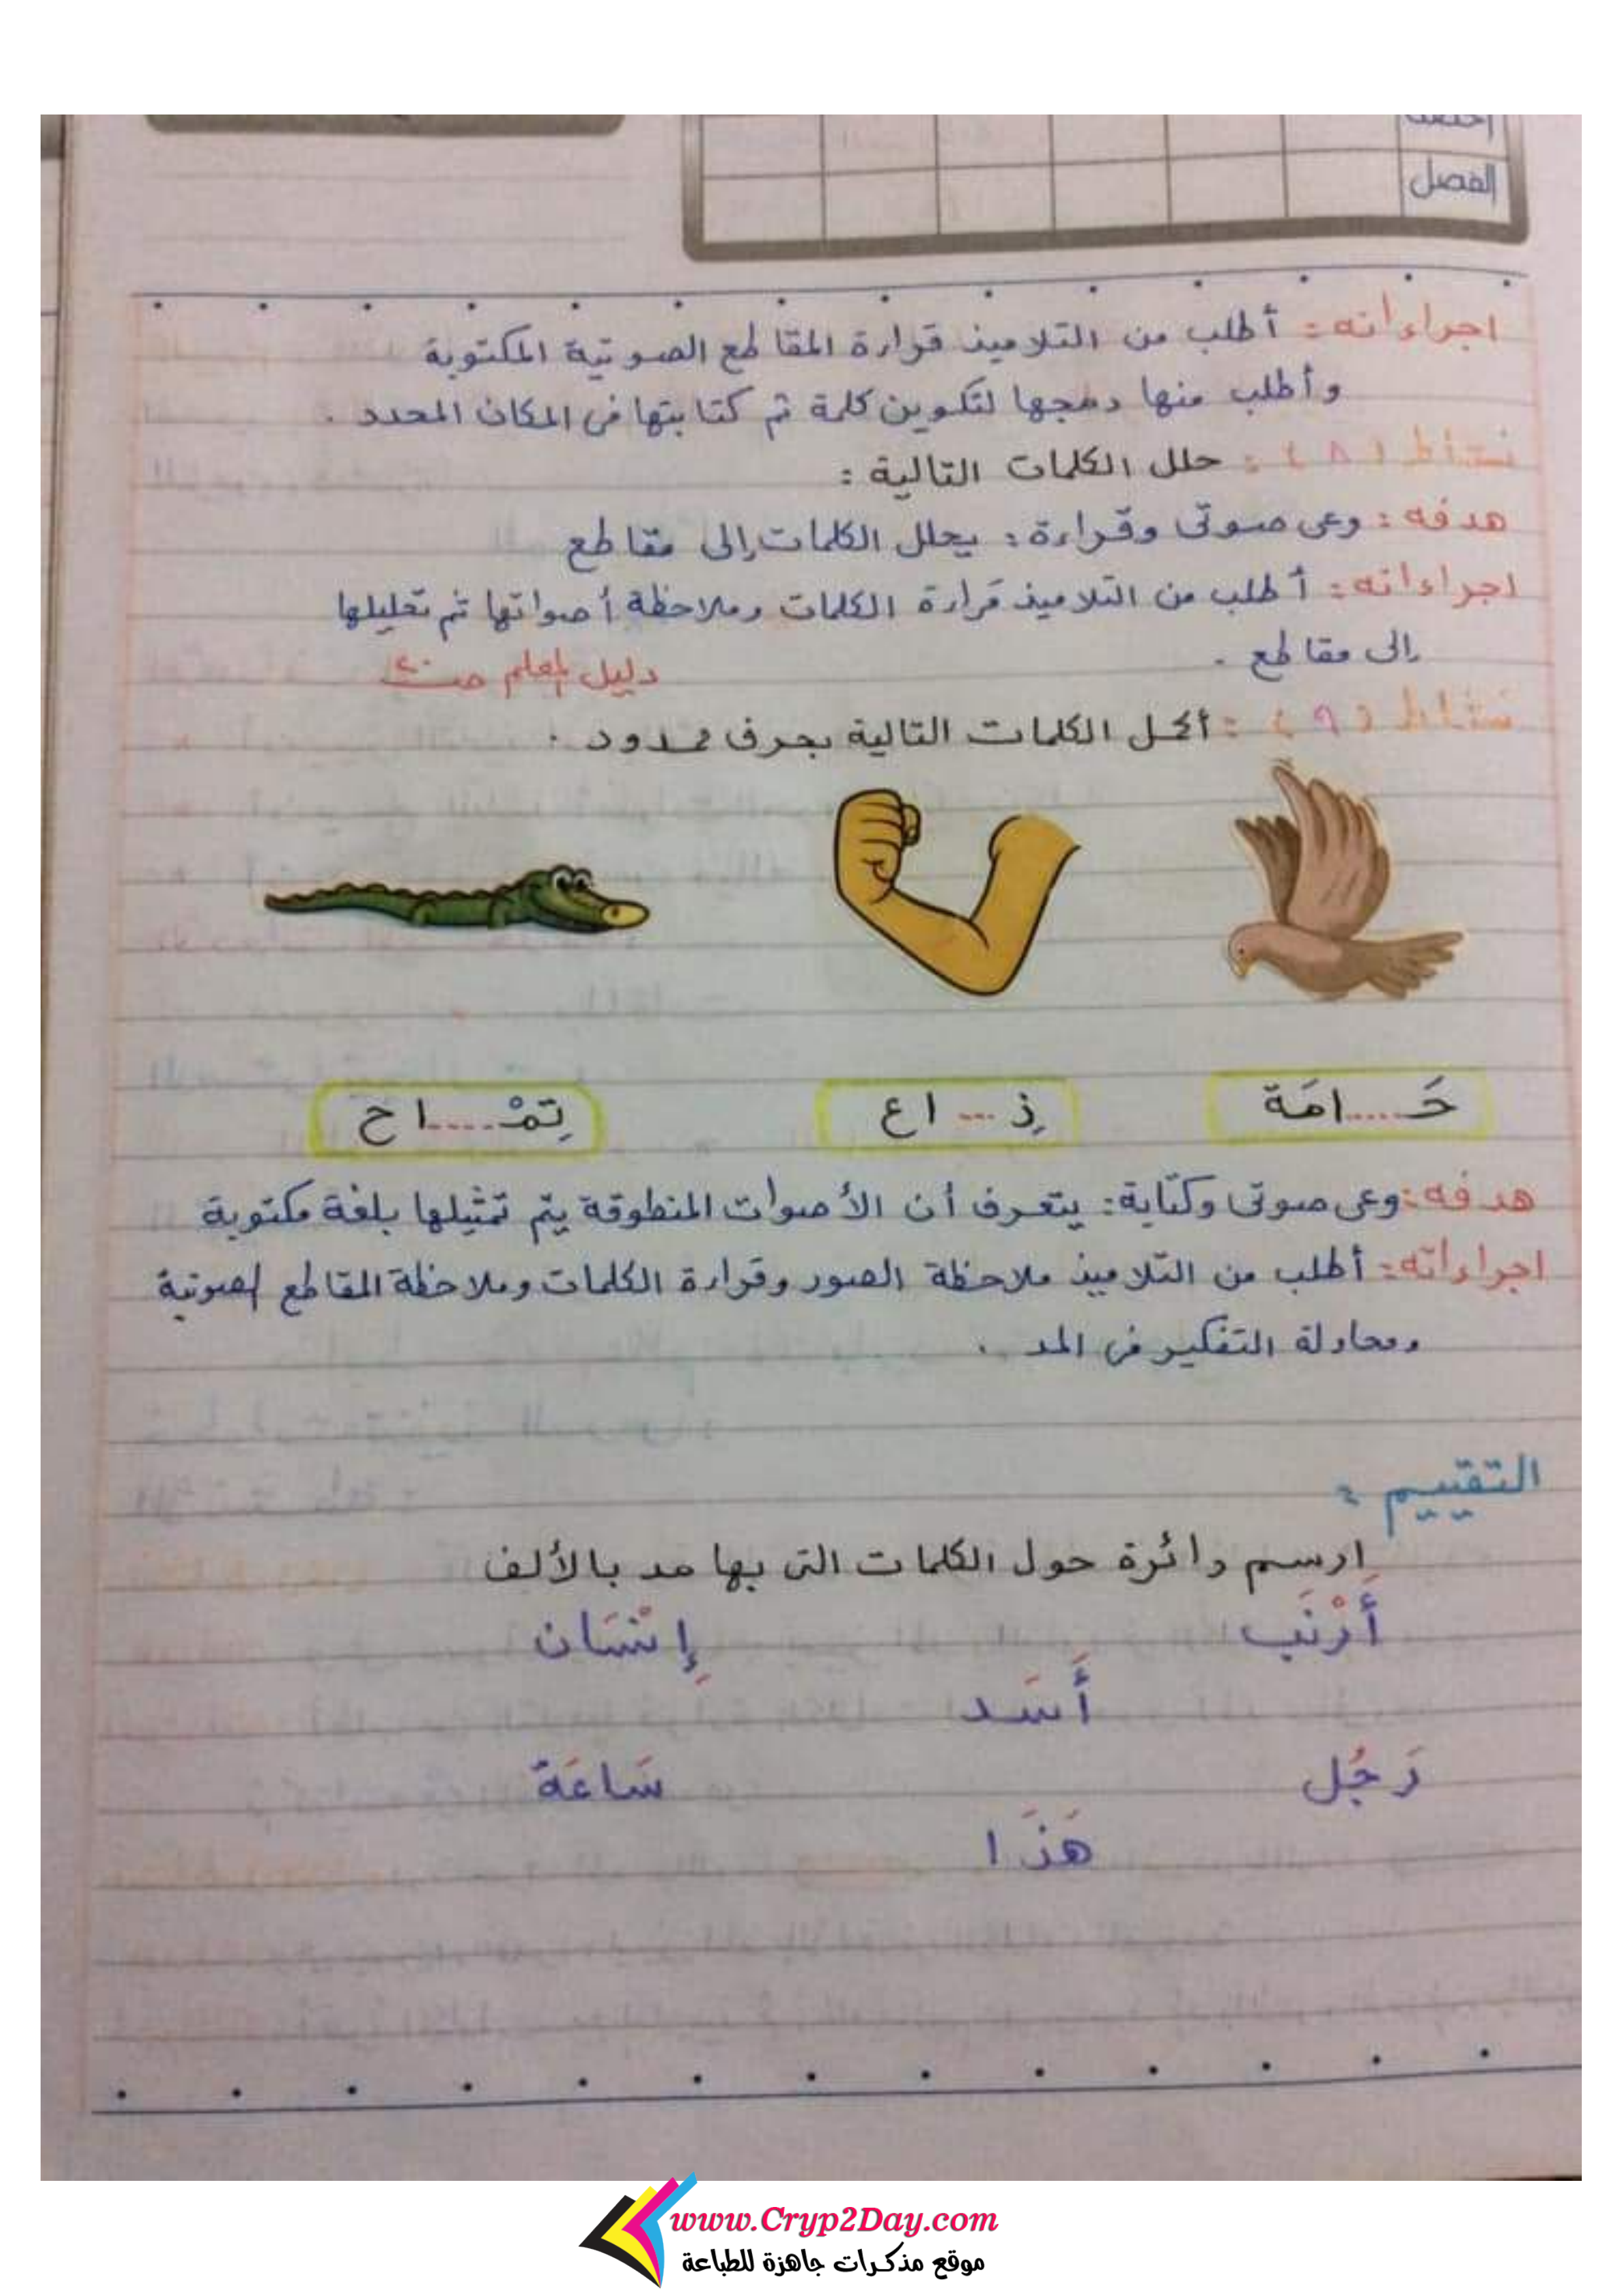 الفصل
اجراءاته : أطلب من التلاميذ قراءة المقاطع الصوتية المكتوبة
وأطلب منها دمجها لتكوين كلمة ثم كتابتها فى المكان المحدد .
نشاط (٨) : حلل الكلمات التالية :
هدفه : وعى صوتى وقراءة : يحلل الكلمات إلى مقاطع
اجراءاته : أطلب من التلاميذ قراءة الكلمات وملاحظة أصواتها ثم تحليلها
إلى مقاطع .
دليل المعلم صـ
نشاط (٩) : أكمل الكلمات التالية بحرف ممدود .
حَـ.....امَة
ذِ ... اع
تِمْـ.....اح
هدفه : وعى صوتى وكتابة : يتعرف أن الأصوات المنطوقة يتم تمثيلها بلغة مكتوبة
اجراءاته : أطلب من التلاميذ ملاحظة الصور وقراءة الكلمات وملاحظة المقاطع الصوتية
ومحاولة التفكير فى المد .
التقييم :
ارسم دائرة حول الكلمات التى بها مد بالألف
أَرْنَب
إِنْسَان
أَسَد
رَجُل
سَاعَة
هَذَا
www.Cryp2Day.com
موقع مذكرات جاهزة للطباعة